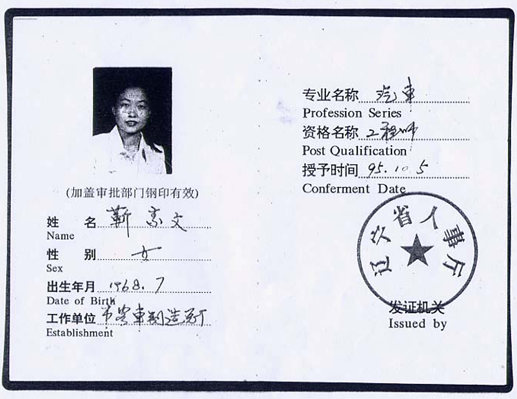 (加盖审批部门钢印有效)
姓 名 靳 文
Name
性 别 女
Sex
出生年月 1968.7
Date of Birth
工作单位 市客車制造厂
Establishment
专业名称 汽車
Profession Series
资格名称 工程师
Post Qualification
授予时间 95.10.5
Conferment Date
辽宁省人事厅
发证机关
Issued by